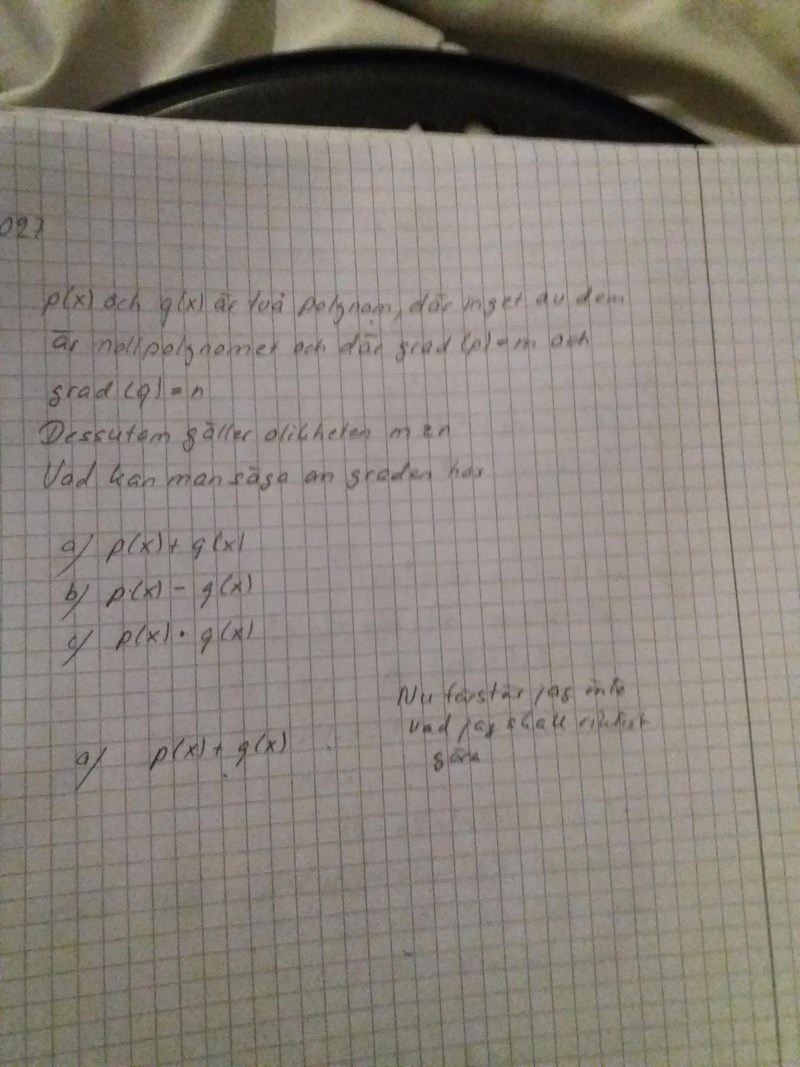 027
p(x) och q(x) är två polynom, där inget av dem
är nollpolynomet och där grad (p) = m och
grad (q) = n
Dessutom gäller olikheten m
Vad kan man säga om graden hos
a) p(x) + q(x)
b) p(x) - q(x)
c) p(x) · q(x)
Nu förstår jag inte
vad jag skall riktigt
göra
a) p(x) + q(x)